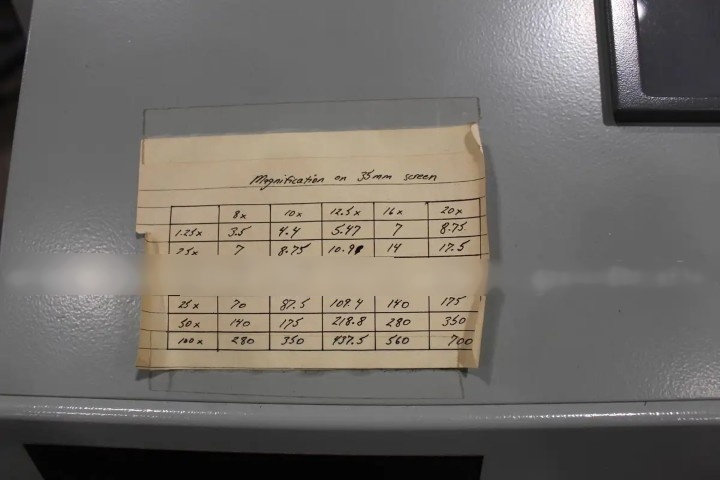 Magnification on 35mm screen
8x 10x 12.5x 16x 20x
1.25x 3.5 4.4 5.47 7 8.75
25x 7 8.75 10.9 14 17.5
25x 70 87.5 109.4 140 175
50x 140 175 218.8 280 350
100x 280 350 437.5 560 700